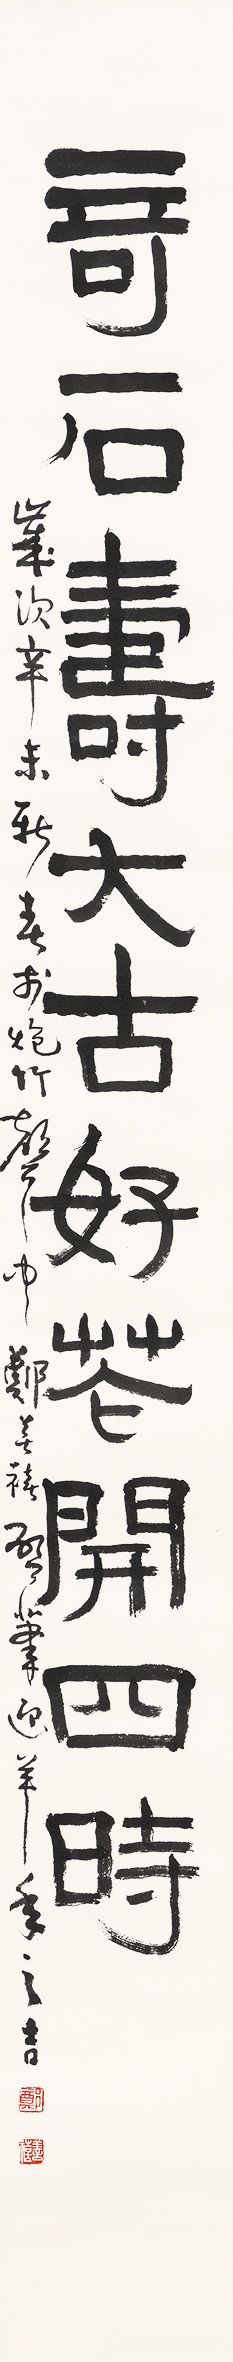 奇石壽大古好花開四時
歲次辛未新春於炮竹聲中鄭善禧啟筆迎羊年之吉